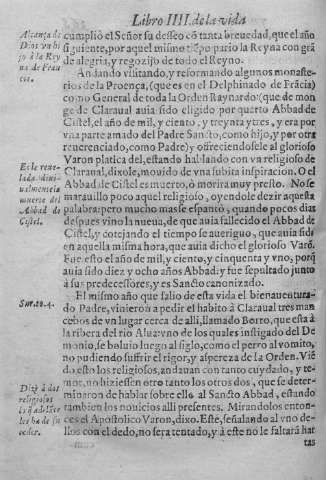 Libro IIII. de la vida
Alcança de
Dios vn hi
jo à la Rey
na de Fran
cia.
cumpliò el Señor su desseo cõ tanta breuedad, que el año
siguiente, por aquel mismo tiẽpo pario la Reyna con grã
de alegria, y regozijo de todo el Reyno.
Andando visitando, y reformando algunos monaste-
rios de la Proença, (que es en el Delphinado de Frãcia)
como General de toda la Orden Raynardo: (que de mon
ge de Claraual auia sido eligido por quarto Abbad de
Cistel, el año de mil, y ciento, y treynta y tres, y era por
vna parte amado del Padre Sancto, como hijo, y por otra
reuerenciado, como Padre) y offreciendosele al glorioso
Varon platica del, estando hablando con vn religioso de
Claraual, dixole, mouido de vna subita inspiracion. O el
Abbad de Cistel es muerto, ò morira muy presto. No se
marauillo poco aquel religioso, oyendole dezir aquella
palabra: pero mucho mas se espantò, quando pocos dias
despues vino la nueua, de que auia fallecido el Abbad de
Cistel, y cotejando el tiempo se aueriguo, que auia sido
en aquella misma hora, que auia dicho el glorioso Varõ.
Fue esto el año de mil, y ciento, y cinquenta y vno, porq̃
auia sido diez y ocho años Abbad: y fue sepultado junto
à sus predecessores, y es Sancto canonizado.
Esle reue-
lada
muerte del
Abbad de
Cistel.
El mismo año que salio de esta vida el bienauentura-
do Padre, vinieron a pedir el habito à Claraual tres man
cebos de vn lugar cerca de alli, llamado Borro, que esta à
la ribera del rio Alua: vno de los quales instigado del De
monio, se boluio luego al siglo, como el perro al vomito,
no pudiendo suffrir el rigor, y aspereza de la Orden. Viẽ
do esto los religiosos, andauan con tanto cuydado, y te-
mor, no hiziessen otro tanto los otros dos, que se deter-
minaron de hablar sobre ello al Sancto Abbad, estando
tambien los nouicios alli presentes. Mirandolos enton-
ces el Apostolico Varon, dixo. Este, señalando al vno de-
llos con el dedo, no sera tentado, y à este no le faltarà har
Sur. 20. 4.
Dize à dos
religiosos
lo q̃ adelãte
les ha de su
ceder.
tas